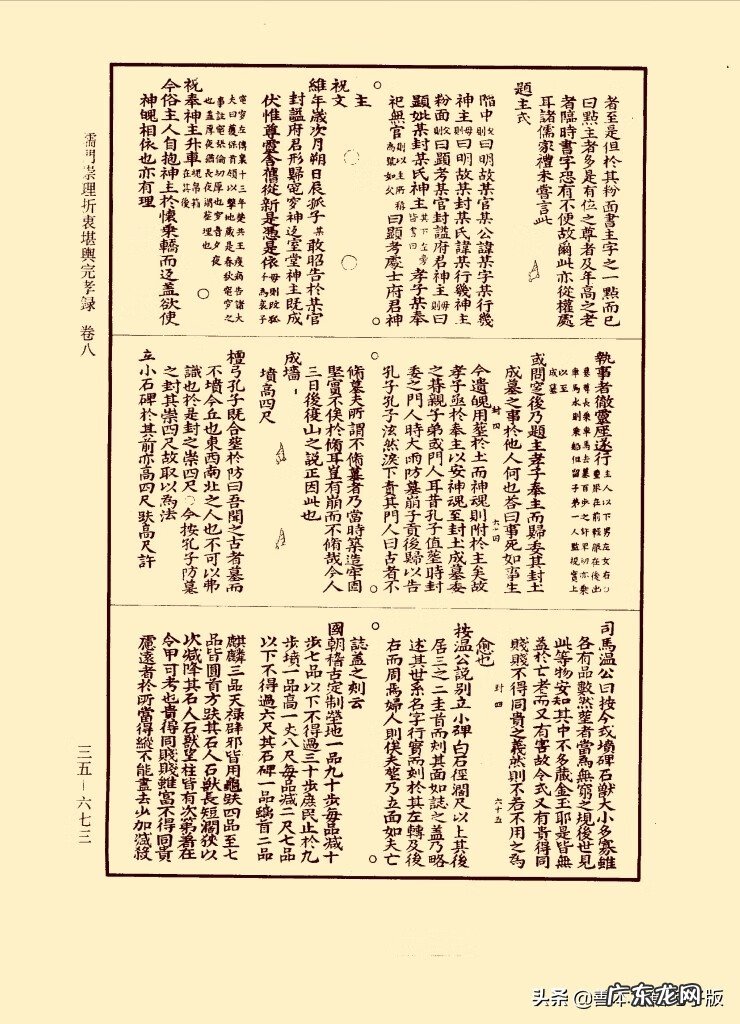 者至是但於其粉面書主字之一點而已
曰點主者多是有位之尊者及年高之老
者臨時書字恐有不便故爾此亦從權處
耳諸儒家禮未嘗言此
題主式
陷中父則曰明故某官某公諱某字某行幾
神主母則曰明故某封某氏諱某行幾神主
粉面父則曰顯考某官封謚府君神主母則曰
顯妣某封某氏神主其下左旁皆書曰孝子某奉
祀無官則以生時所稱為號如父曰顯考處士府君神
主
祝文
維年歲次月朔日辰孤子某敢昭告於某官
封謚府君形歸窀穸神返室堂神主既成
伏惟尊靈舍舊從新是憑是依
祝奉神主升車
今俗主人自抱神主於懷乘轎而返蓋欲使
神魄相依也亦有理
執事者徹靈座遂行
或問窆後乃題主孝子奉主而歸委其封土
成墓之事於他人何也答曰事死如事生
今遺魄用葬於土而神魂則附於主矣故
孝子亟於奉主以安神魂至封土成墓委
之者親子弟或門人耳昔孔子值葬時封
委之門人時大雨防墓崩子貢後歸以告
孔子孔子泫然淚下責其門人曰古者不
脩墓夫所謂不脩墓者乃當時築造牢固
堅實不俟於脩耳豈有崩而不脩哉今人
三日後復山之說正因此也
成墳
墳高四尺
檀弓孔子既合葬於防曰吾聞之古者墓而
不墳今丘也東西南北之人也不可以弗
識也於是封之崇四尺今按孔子防墓
之封其崇四尺故取以為法
立小石碑於其前亦高四尺趺高尺許
司馬溫公曰按今式墳碑石獸大小多寡雖
各有品數然葬者當為無窮之規後世見
此等物安知其中不多藏金玉耶是皆無
益於亡者而又有害故令式又有貴得同
賤賤不得同貴之義然則不若不用之為
愈也
按溫公說別立小碑白石徑闊尺以上其後
居三之二圭首而刻其面如誌之蓋乃略
述其世系名字行實而刻於其左轉及後
右而周焉婦人則俟夫葬乃立面如夫亡
誌蓋之刻云
國朝稽古定制塋地一品九十步每品減十
步七品以下不得過三十步庶民止於九
步墳一品高一丈八尺每品減二尺七品
以下不得過六尺其石碑一品螭首二品
麒麟三品天祿辟邪皆用龜趺四品至七
品皆圓首方趺其石人石獸長短闊狹以
次減降其石人石獸望柱皆有次第著在
令甲可考也貴得同賤賤雖富不得同貴
慮遠者於所當得縱不能盡去少加減殺
儒門崇理折衷堪輿完孝録 卷八
三五－六七三
头条
广东龙网